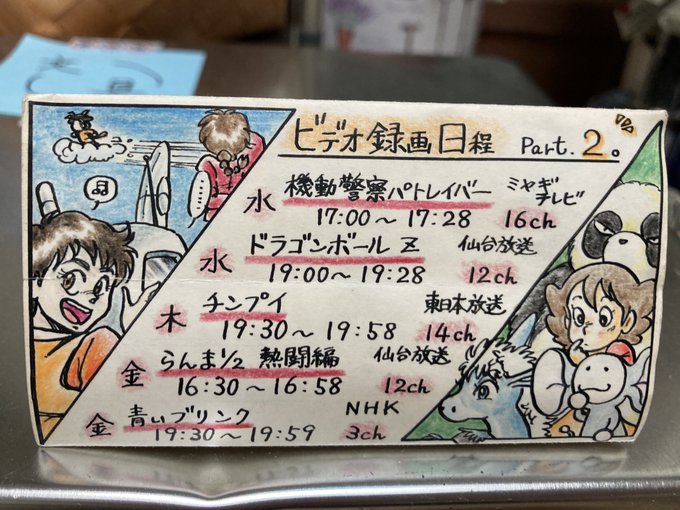 ビデオ録画日程 Part.2。
水 機動警察パトレイバー ミヤギテレビ
17:00〜17:28 16ch
水 ドラゴンボールZ 仙台放送
19:00〜19:28 12ch
木 チンプイ 東日本放送
19:30〜19:58 14ch
金 らんま½ 熱闘編 仙台放送
16:30〜16:58 12ch
金 青いブリンク NHK
19:30〜19:59 3ch